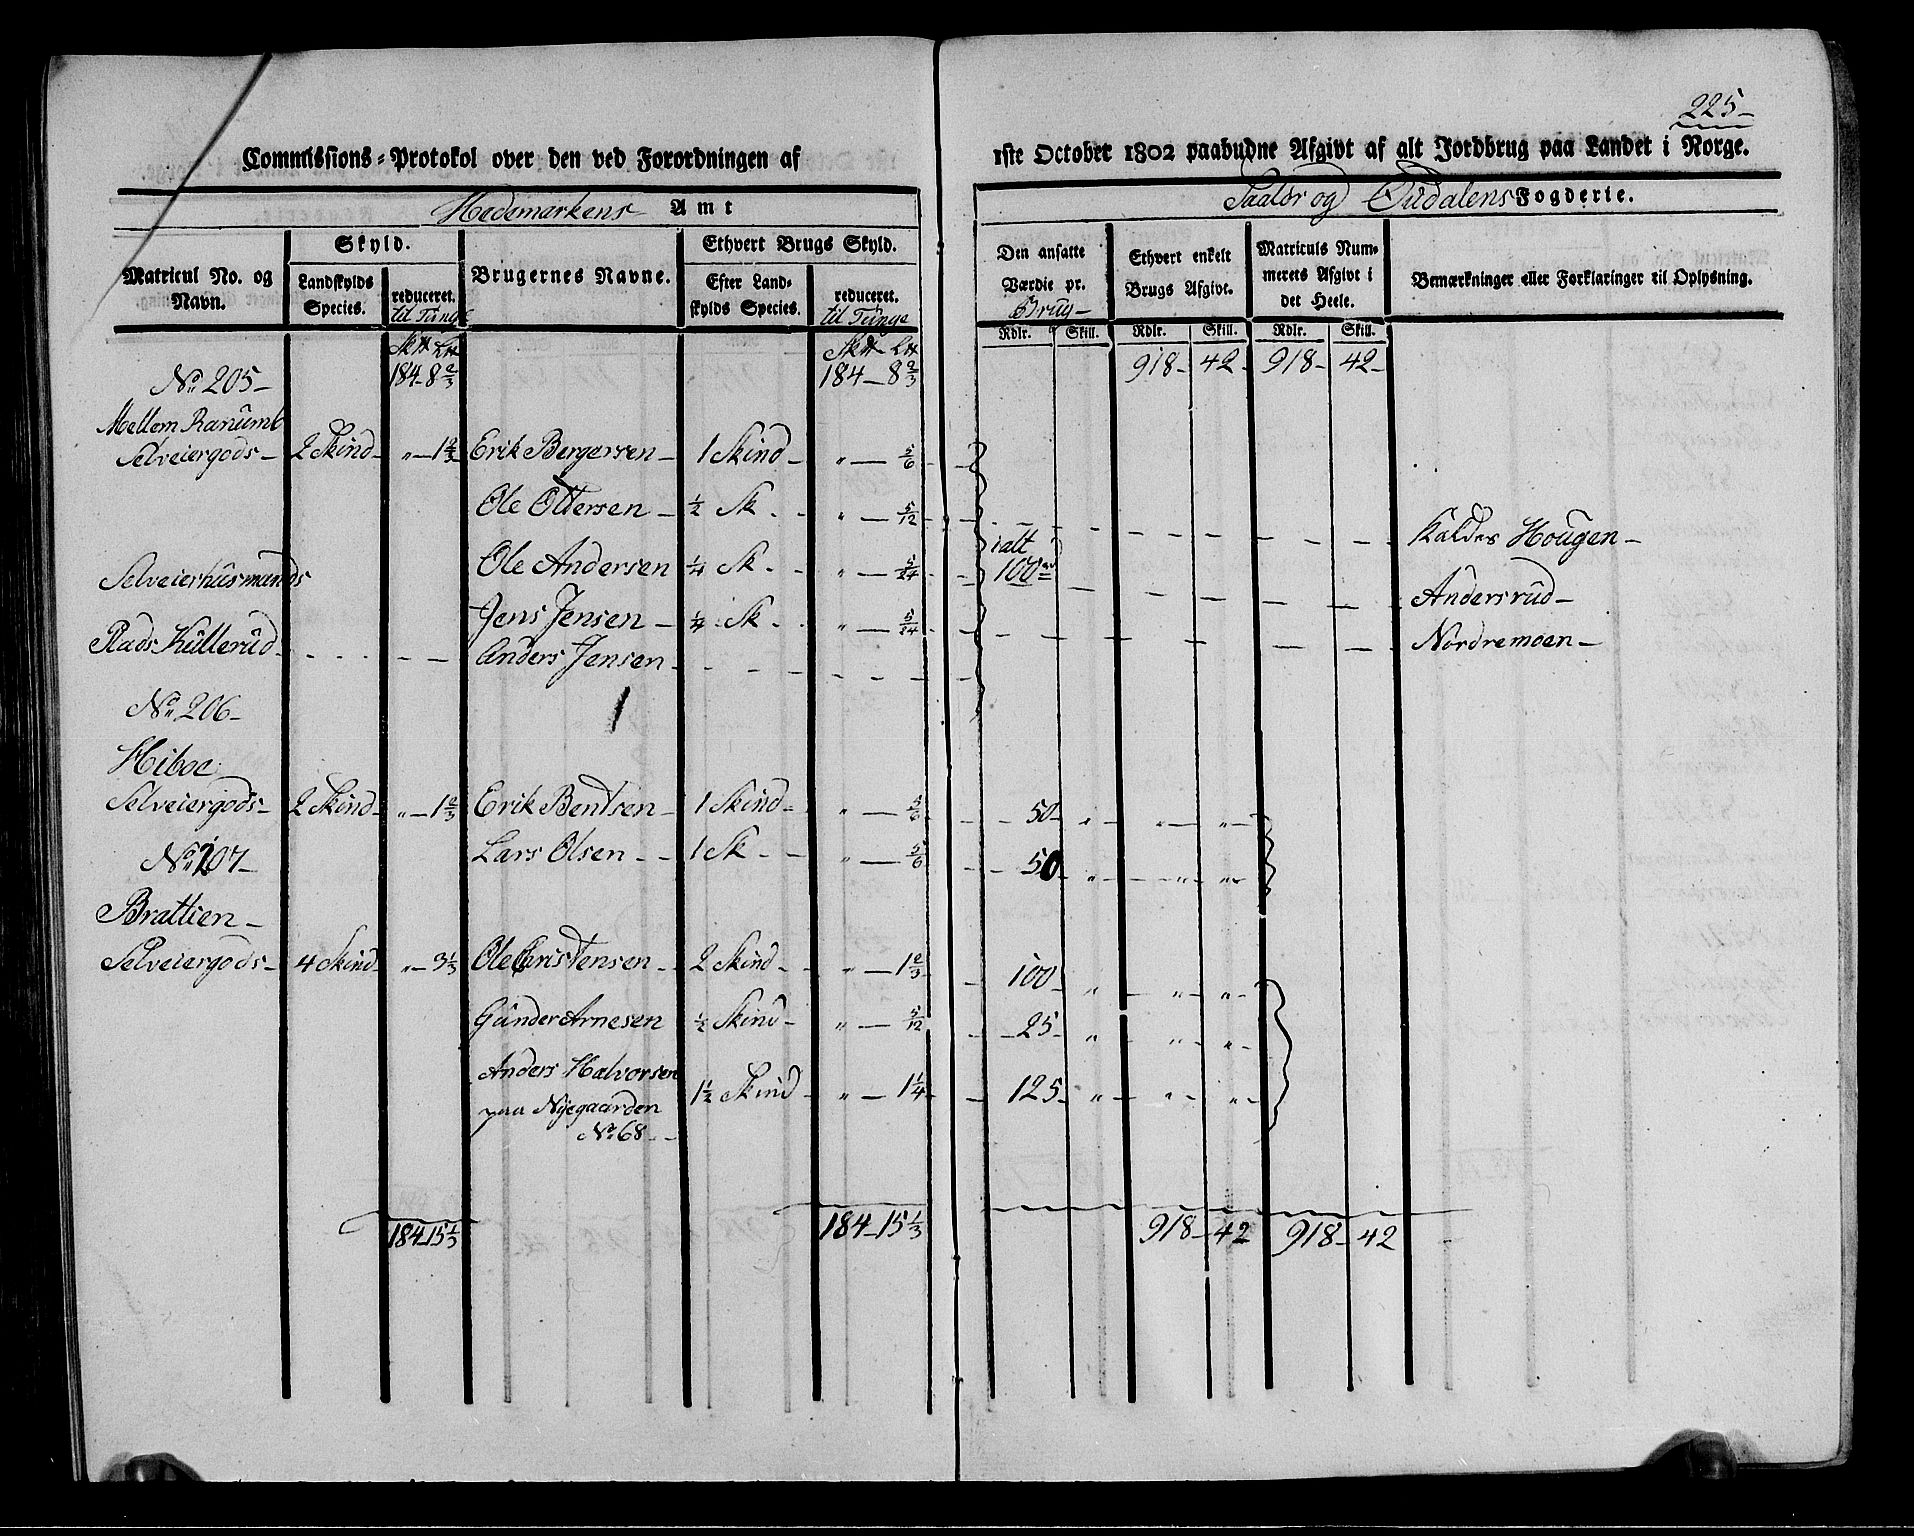 225-
Commissions-Protokol over den ved Forordningen af
1ste October 1802 paabudne Afgivt af alt Jordbrug paa Landet i Norge.
Hedemarkens Amt
Soløer og Oudalens Fogderie.
Matricul No. og Navn.
Skyld.
Landskylds Species.
reduceret. til Tunge
Brugernes Navne.
Ethvert Brugs Skyld.
Efter Landskylds Species.
reduceret. til Tunge
Den ansatte Værdie pr. Brug-
Ethvert enkelt Brugs Afgivt.
Matriculs Nummerets Afgivt i det Heele.
Bemærkninger eller Forklaringer til Oplysning.
Rdlr. Skill. Rdlr. Skill. Rdlr. Skill.
No 205- 184-8 2/3 184-8 2/3 918- 42- 918- 42-
Mellem Ranum
Selveiergods- 2 Skind- „-1 2/3 Erik Bergersen- 1 Skind- „- 5/6
Ole Ottersen- 1/2 Sk. - „- 5/12 Kaldes Hougen-
Selveierhuusmands Ole Andersen 1/4 Sk - „- 5/24 ialt 100 Andersrud-
Jens Jensen- 1/4 Sk - „- 5/24 Nordremoen-
Plads Kullerud- Anders Jensen-
No 206-
Hiboe
Selveiergods- 2 Skind- „-1 2/3 Erik Bentsen- 1 Skind- „- 5/6 50- „ „ „
No 207- Lars Olsen- 1 Sk - „- 5/6 50- „ „ „
Brattien-
Selveiergods- 4 Skind- „-3 1/3 Ole Christensen- 2 Skind- „-1 2/3 100 „ „ „
Gunder Arnesen 1/2 Skind- „- 5/12 25- „ „ „
Anders Halvorsen 1 1/2 Skind- „-1 1/4 125- „ „ „
paa Nyegaarden
No 68-
184-15 1/3 184-15 1/3 918- 42 918- 42